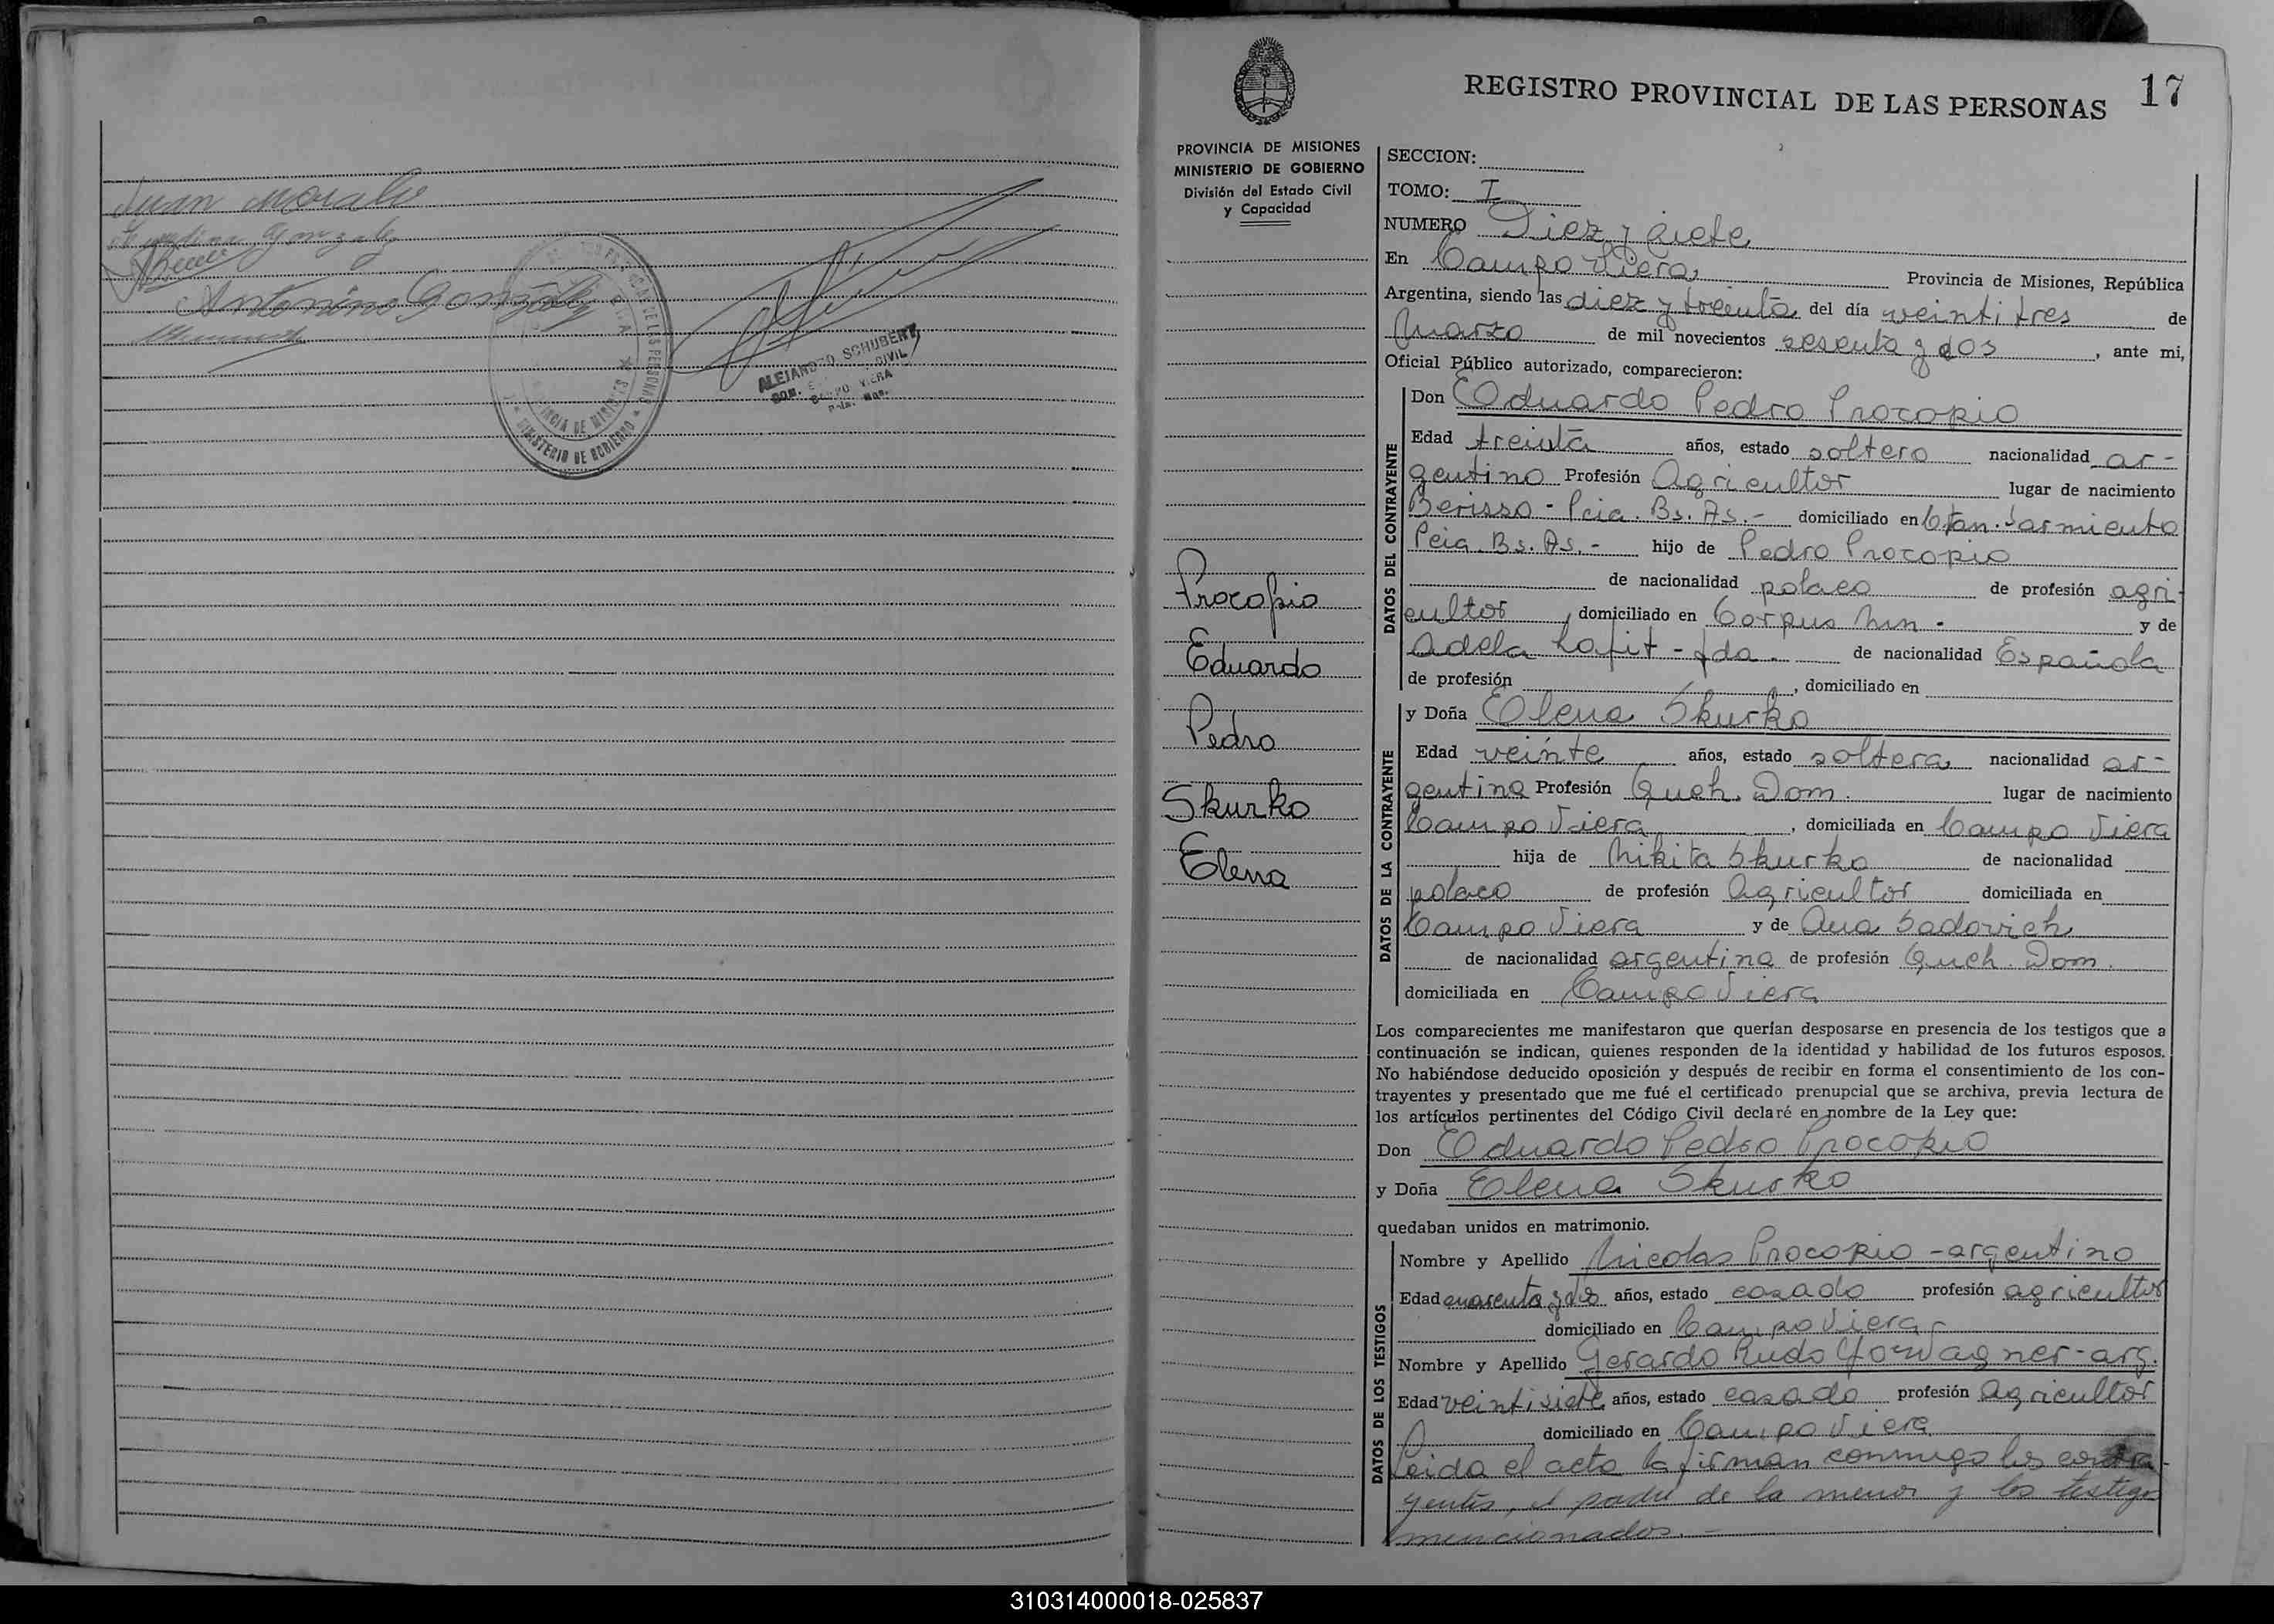 Juan Morales
Gonzalez
Antonino Gonzalez
MINISTERIO DE GOBIERNO
PROVINCIA DE MISIONES
ALEJANDRO SCHUBERT
CIVIL
17
REGISTRO PROVINCIAL DE LAS PERSONAS
PROVINCIA DE MISIONES
MINISTERIO DE GOBIERNO
División del Estado Civil
y Capacidad
Procopio
Eduardo
Pedro
Skurko
Elena
SECCION:
TOMO: I
NUMERO Diez y siete
En Campo Viera Provincia de Misiones, República
Argentina, siendo las diez y treinta del día veintitres de
Marzo de mil novecientos sesenta y dos, ante mi,
Oficial Público autorizado, comparecieron:
DATOS DEL CONTRAYENTE
Don Eduardo Pedro Procopio
Edad treinta años, estado soltero nacionalidad ar-
gentino Profesión Agricultor lugar de nacimiento
Berisso - Pcia. Bs. As. - domiciliado en Sarmiento
Pcia. Bs. As. - hijo de Pedro Procopio
de nacionalidad polaco de profesión agri-
cultor, domiciliado en Corpus Mnes. y de
Adela Lafit - fda. de nacionalidad Española
de profesión , domiciliado en
DATOS DE LA CONTRAYENTE
y Doña Elena Skurko
Edad veinte años, estado soltera nacionalidad ar-
gentina Profesión Queh. Dom. lugar de nacimiento
Campo Viera, domiciliada en Campo Viera
hija de Nikita Skurko de nacionalidad
polaco de profesión Agricultor domiciliada en
Campo Viera y de Ana Sadovich
de nacionalidad argentina de profesión Queh. Dom.
domiciliada en Campo Viera
Los comparecientes me manifestaron que querían desposarse en presencia de los testigos que a
continuación se indican, quienes responden de la identidad y habilidad de los futuros esposos.
No habiéndose deducido oposición y después de recibir en forma el consentimiento de los con-
trayentes y presentado que me fué el certificado prenupcial que se archiva, previa lectura de
los artículos pertinentes del Código Civil declaré en nombre de la Ley que:
Don Eduardo Pedro Procopio
y Doña Elena Skurko
quedaban unidos en matrimonio.
DATOS DE LOS TESTIGOS
Nombre y Apellido Nicolas Procopio - argentino
Edad cuarenta y dos años, estado casado profesión agricultor
domiciliado en Campo Viera
Nombre y Apellido Gerardo Rudolfo Wagner - arg.
Edad veintisiete años, estado casado profesión agricultor
domiciliado en Campo Viera
Leida el acta la firman conmigo los contra-
yentes, el padre de la menor y los testigos
mencionados. -
310314000018-025837